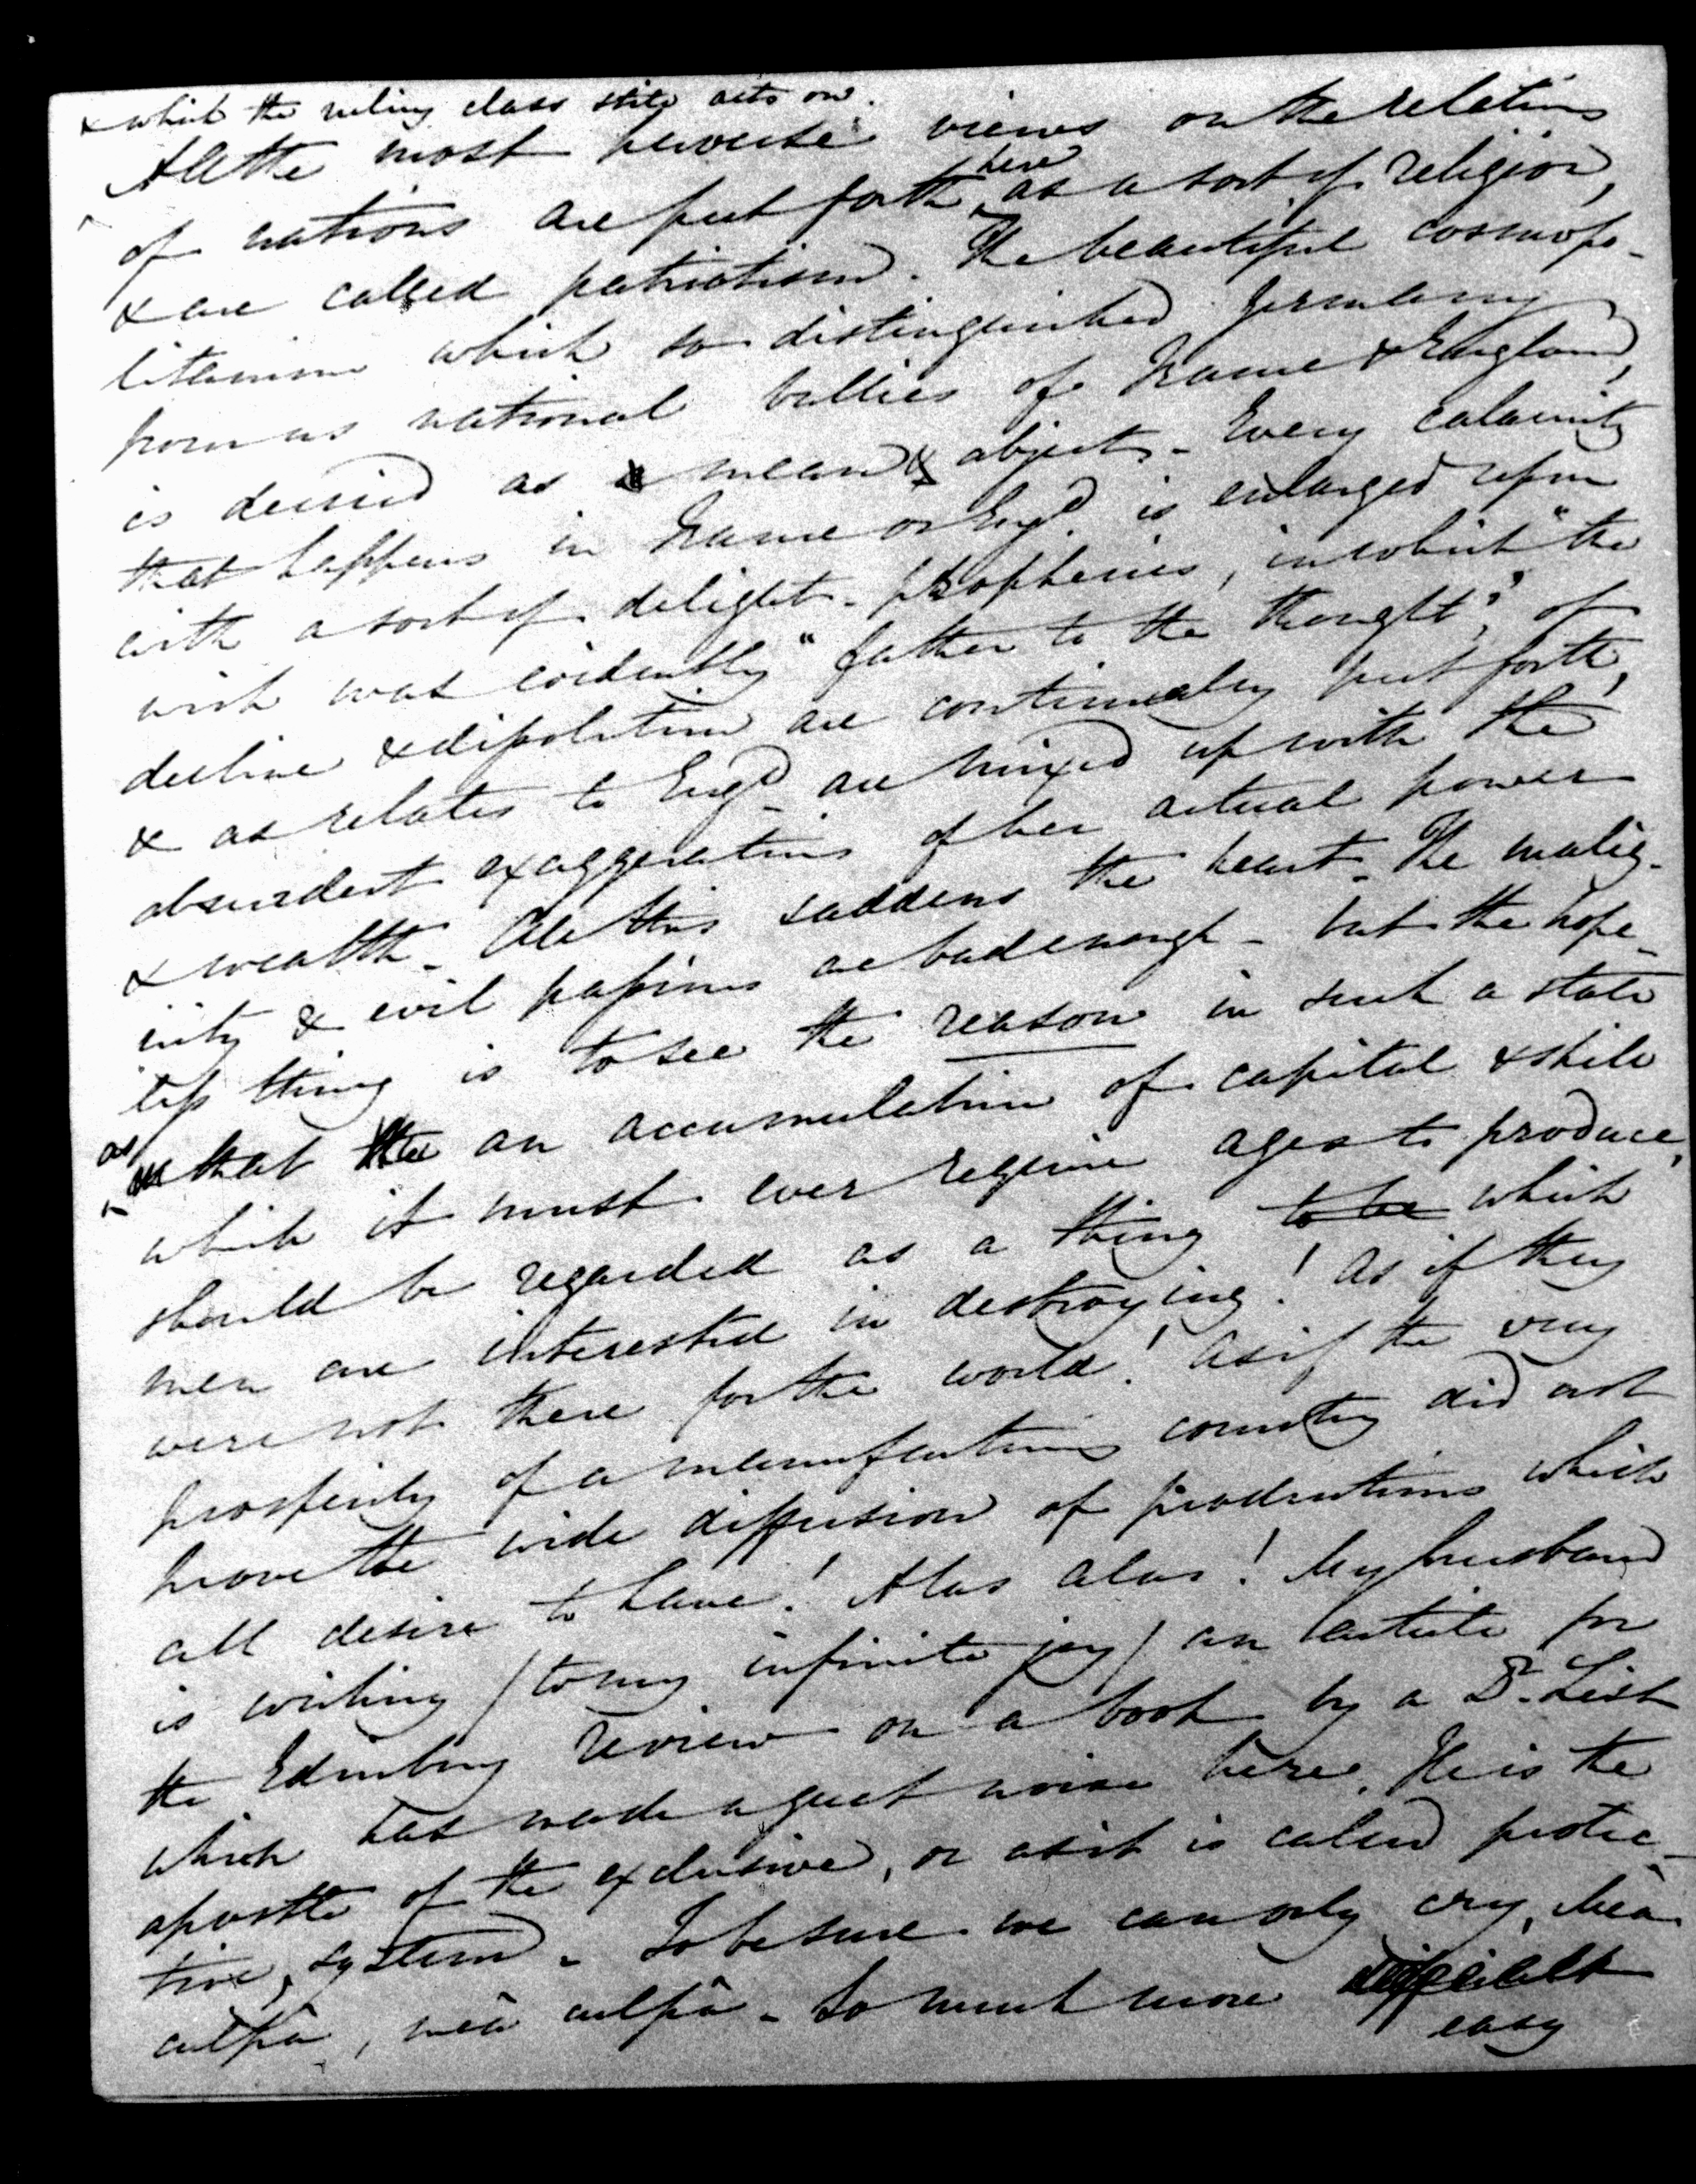 & which the ruling class still acts on.
All the most perverse views on the relations
of nations are put forth here as a sort of religion,
& are called patriotism. The beautiful cosmopo-
litanism which so distinguished Germany
from us national bullies of France & England,
is decried as mean & abject. Every calamity
that happens in France or Engd. is enlarged upon
with a sort of delight - prophecies, in which "the
wish was evidently "father to the thought", of
decline & dissolution are continually put forth,
& as relates to Engd. are mixed up with the
absurdest exaggerations of her actual power
& wealth. All this saddens the heart. The malig-
nity & evil passions are bad enough - but the hope-
less thing is to see the reason in such a state
as that the an accumulation of capital & skill
which it must ever require ages to produce,
should be regarded as a thing to be which
men are interested in destroying! As if they
were not there for the world! As if the very
prosperity of a manufacturing country did not
prove the wide diffusion of productions which
all desire to have! Alas alas! My husband
is writing (to my infinite joy) an article for
the Edinburg Review on a book by a Dr. List
which has made a great noise here. He is the
apostle of the exclusive, or as it is called protec-
tive, system. To be sure we can only cry, Meâ
culpâ, meâ culpâ - So much more difficult
easy